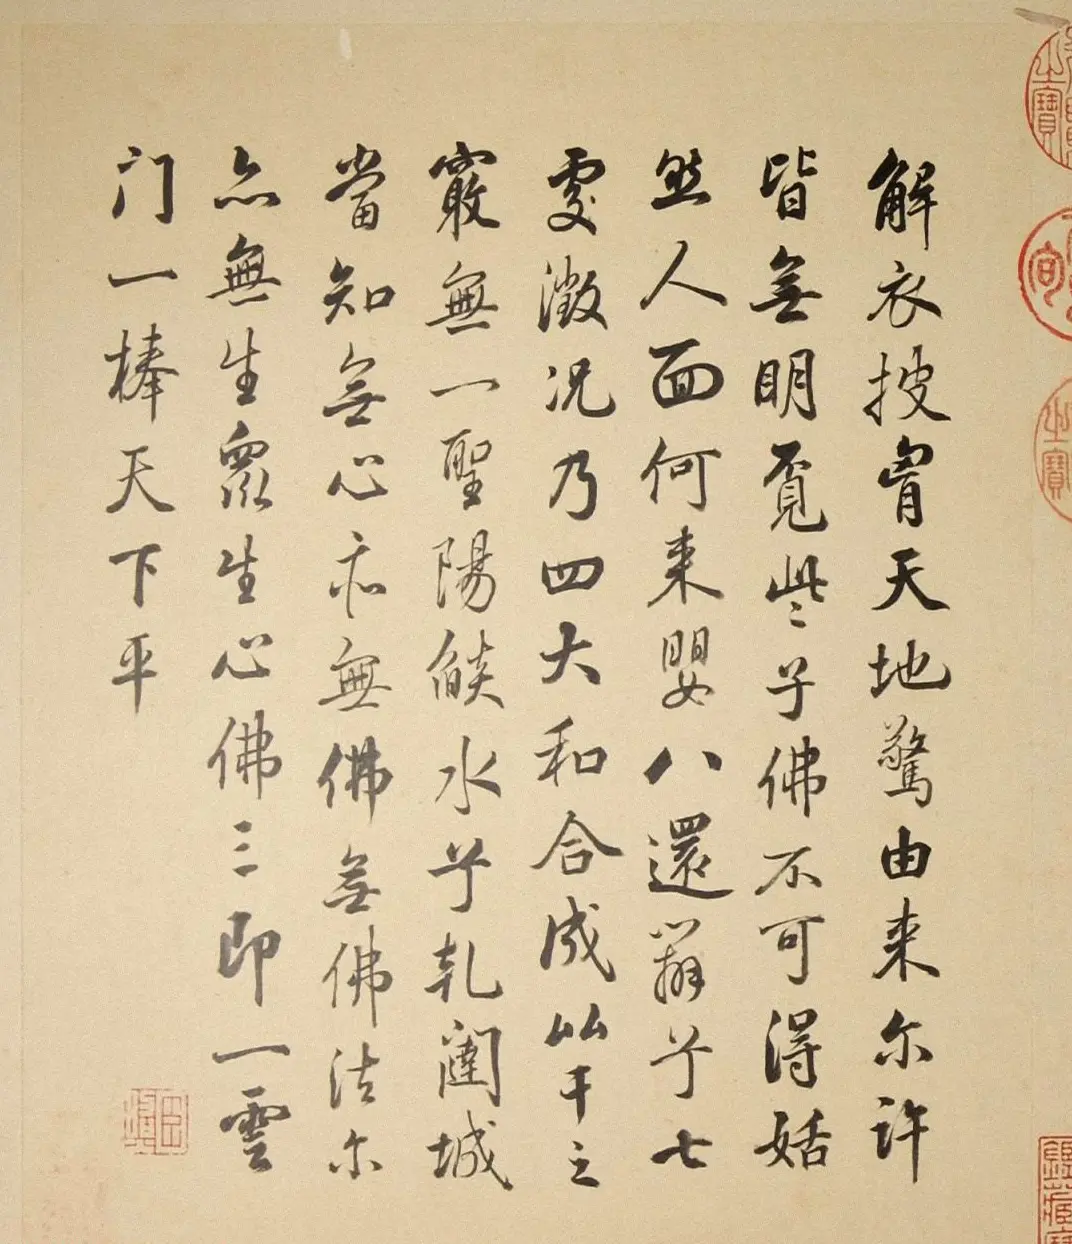 解衣披胷天地驚由来尔許
皆無明覔些子佛不可得姡
然人面何来嬰八還辯兮七
處澂况乃四大和合成比干之
竅無一聖陽燄水兮乹闥城
當知無心亦無佛無佛法尔
亦無生眾生心佛三即一雲
门一棒天下平